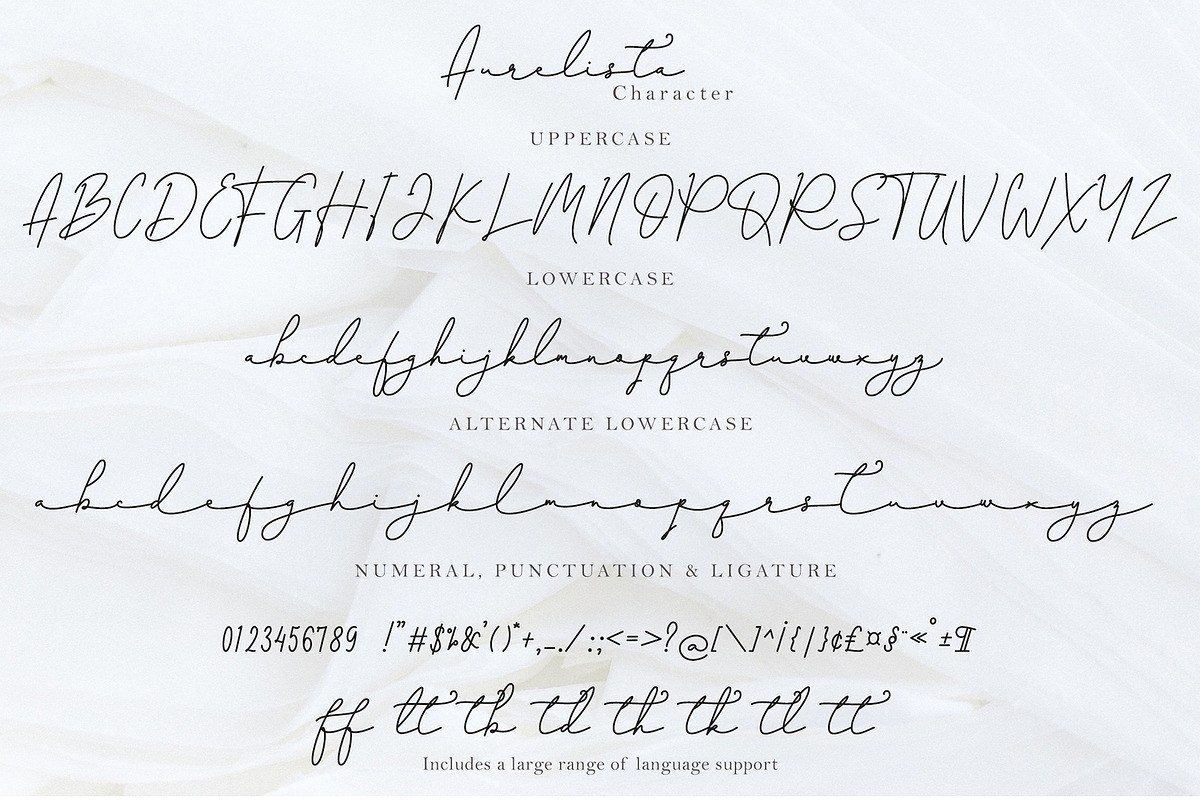 Aurelista
Character
UPPERCASE
ABCDEFGHIJKLMNOPQRSTUVWXYZ
LOWERCASE
abcdefghijklmnopqrstuvwxyz
ALTERNATE LOWERCASE
abcdefghijklmnopqrstuvwxyz
NUMERAL, PUNCTUATION & LIGATURE
0123456789 !"#$%&'()*+,-./:;<=>?@[\]^¡{|}¢£¤§¨«°±¶
ff lt tb td th tk tl tt
Includes a large range of language support